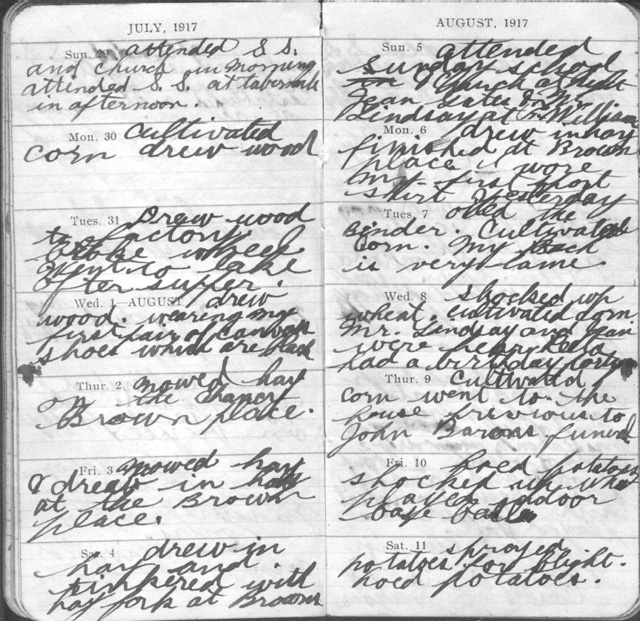 JULY, 1917
Sun. 29 attended S S.
and church in morning
attended S. S. at tabernacle
in afternoon.
Mon. 30 Cultivated
corn drew wood
Tues. 31 Drew wood
to factory.
Broke wheel
Went to lake
after supper.
Wed. 1 AUGUST drew
wood. wearing my
first pair of canvas
shoes which are black
Thur. 2 mowed hay
on the Chancy
Brown place.
Fri. 3 mowed hay
& drew in hay
at the Brown
place.
Sat. 4 drew in
hay and
tinkered with
hay fork at Browns
AUGUST, 1917
Sun. 5 attended
Sunday school
& Church at night
Jean &
Lindsay at William
Mon. 6 drew in hay
finished at Brown
place I wore
my first short
shirt yesterday
Tues. 7 oiled the
binder. Cultivated
Corn. My back
is very lame.
Wed. 8 Shocked up
wheat. Cultivated corn
Mr. Lindsay and Jean
were here Leela
had a birthday party
Thur. 9 Cultivated
corn went to the
house previous to
John Barons funeral
Fri. 10 hoed potatoes
shocked up wheat
played indoor
base ball
Sat. 11 sprayed
potatoes for blight.
hoed potatoes.